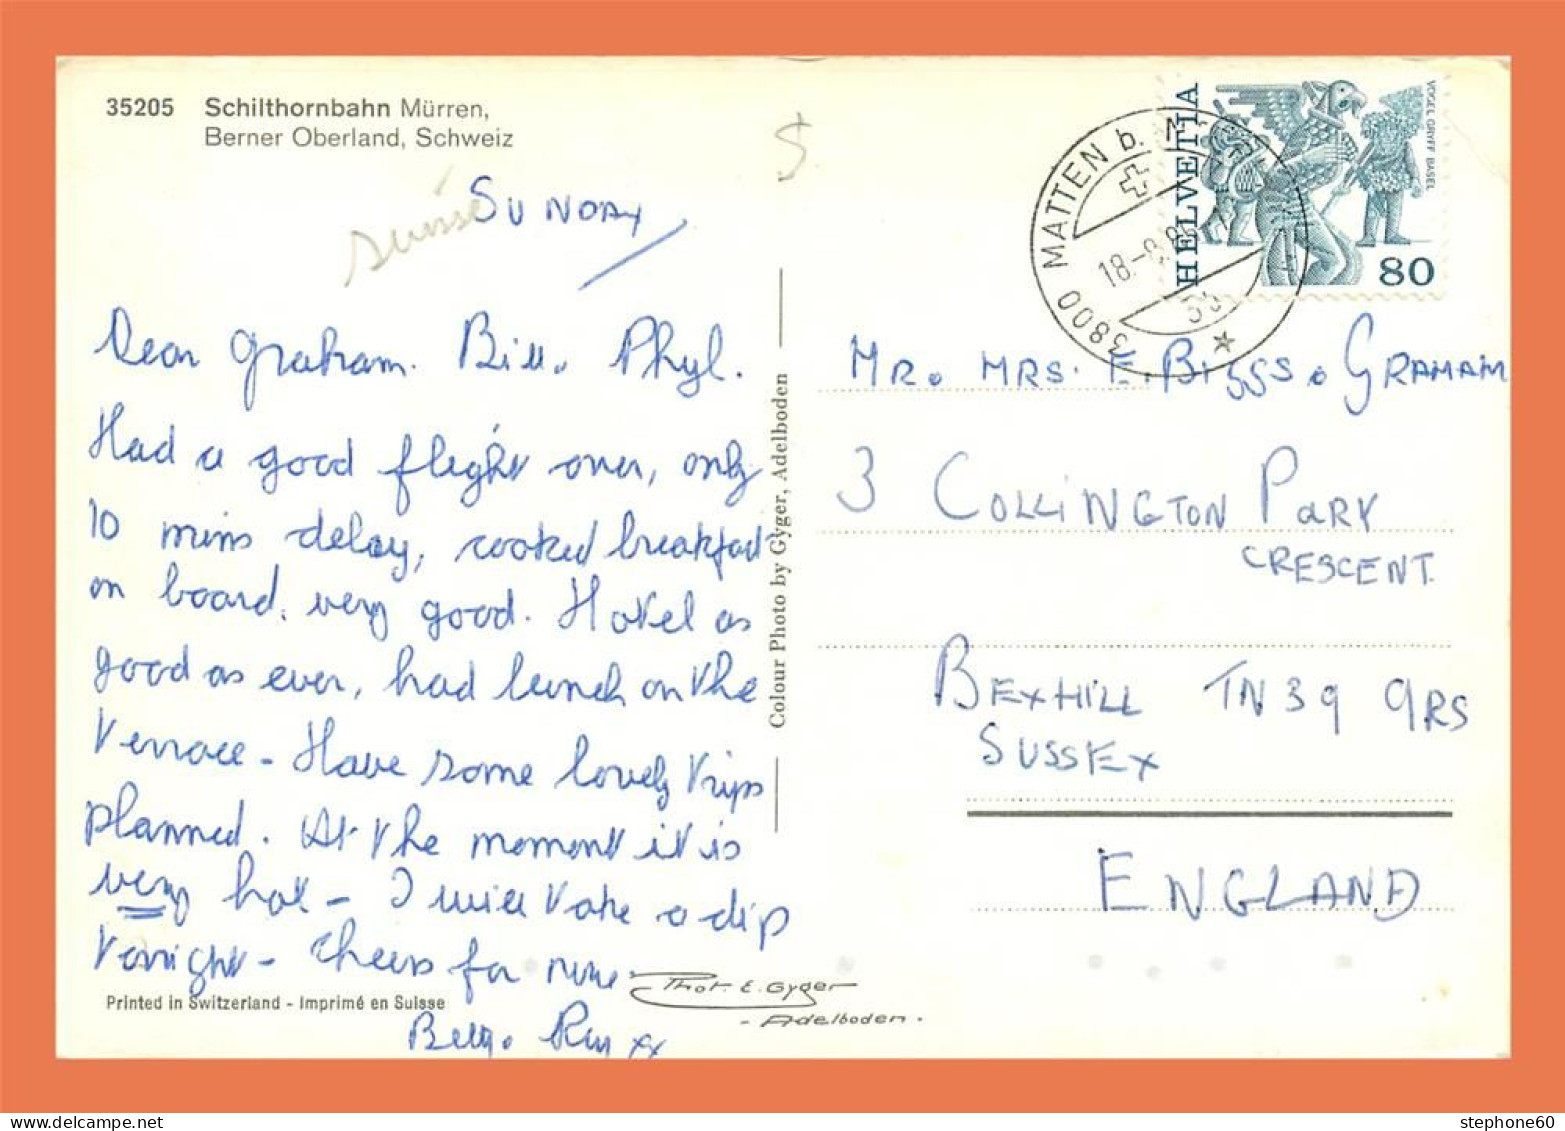 35205 Schilthornbahn Mürren,
Berner Oberland, Schweiz
suisse
SUNDAY
Dear Graham. Bill. Phyl.
Had a good flight over, only
10 mins delay, cooked breakfast
on board. very good. Hotel as
good as ever, had lunch on the
terrace - Have some lovely trips
planned. At the moment it is
very hot - I will take a dip
tonight - cheers for now
Printed in Switzerland - Imprimé en Suisse
Colour Photo by Gyger, Adelboden
Phot. E. Gyger
- Adelboden.
HELVETIA
VOGEL GRYFF BASEL
80
3800 MATTEN b.
18.-9.
MR. MRS. E. BIGGS. GRAHAM
3 COLLINGTON PARK
CRESCENT.
BEXHILL TN39 9RS
SUSSEX
ENGLAND
stephone60